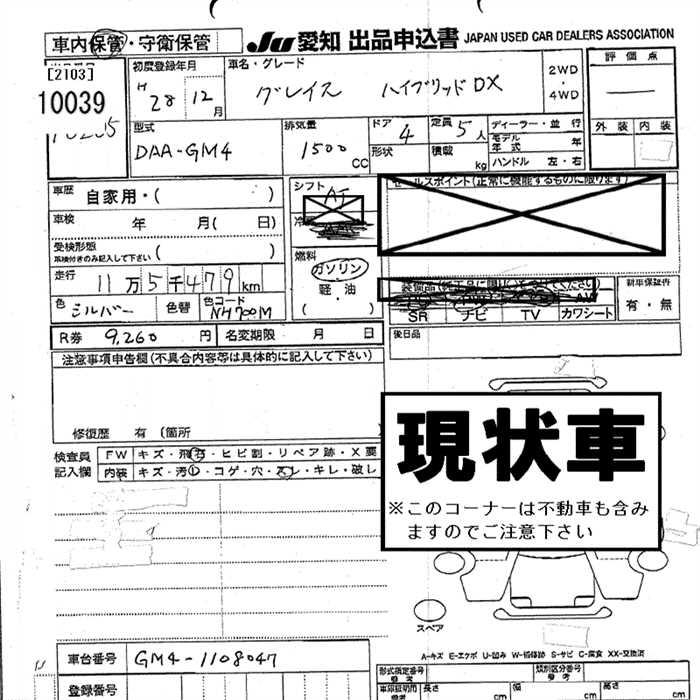 車内保管・守衛保管
JU愛知 出品申込書 JAPAN USED CAR DEALERS ASSOCIATION
[2103]
10039
初度登録年月
H28 12月
車名・グレード
グレイス ハイブリッドDX
2WD
・
4WD
評価点
外装 内装
型式
DAA-GM4
排気量
1500
CC
ドア 4
形状
定員 5人
積載 kg
ディーラー・並行
モデル年式 年
ハンドル 左・右
車歴 自家用・( )
車検 年 月( 日)
受検形態
( )
走行 11万5千479km
色 シルバー 色替 色コード NH700M
シフト AT
燃料
ガソリン
軽・油
・
( )
セールスポイント(正常に機能するものに限ります)
SR ナビ TV カワシート
新車保証書
有・無
R券 9,260円 名変期限 月 日
後日品
注意事項申告欄(不具合内容等は具体的に記入して下さい)
修復歴 有 (箇所
現状車
※このコーナーは不動車も含み
ますのでご注意下さい
検査員
記入欄
FW キズ・飛石・ヒビ割・リペア跡・X要
内装 キズ・汚レ・コゲ・穴・スレ・キレ・破レ
スペア
A-キズ E-エクボ U-凹み W-補修跡 S-サビ C-腐食 XX-交換済
車台番号 GM4-1108047
登録番号
型式指定番号
参考
類別区分番号
参考
車印証明用
参考
長さ cm
幅 cm
高さ cm